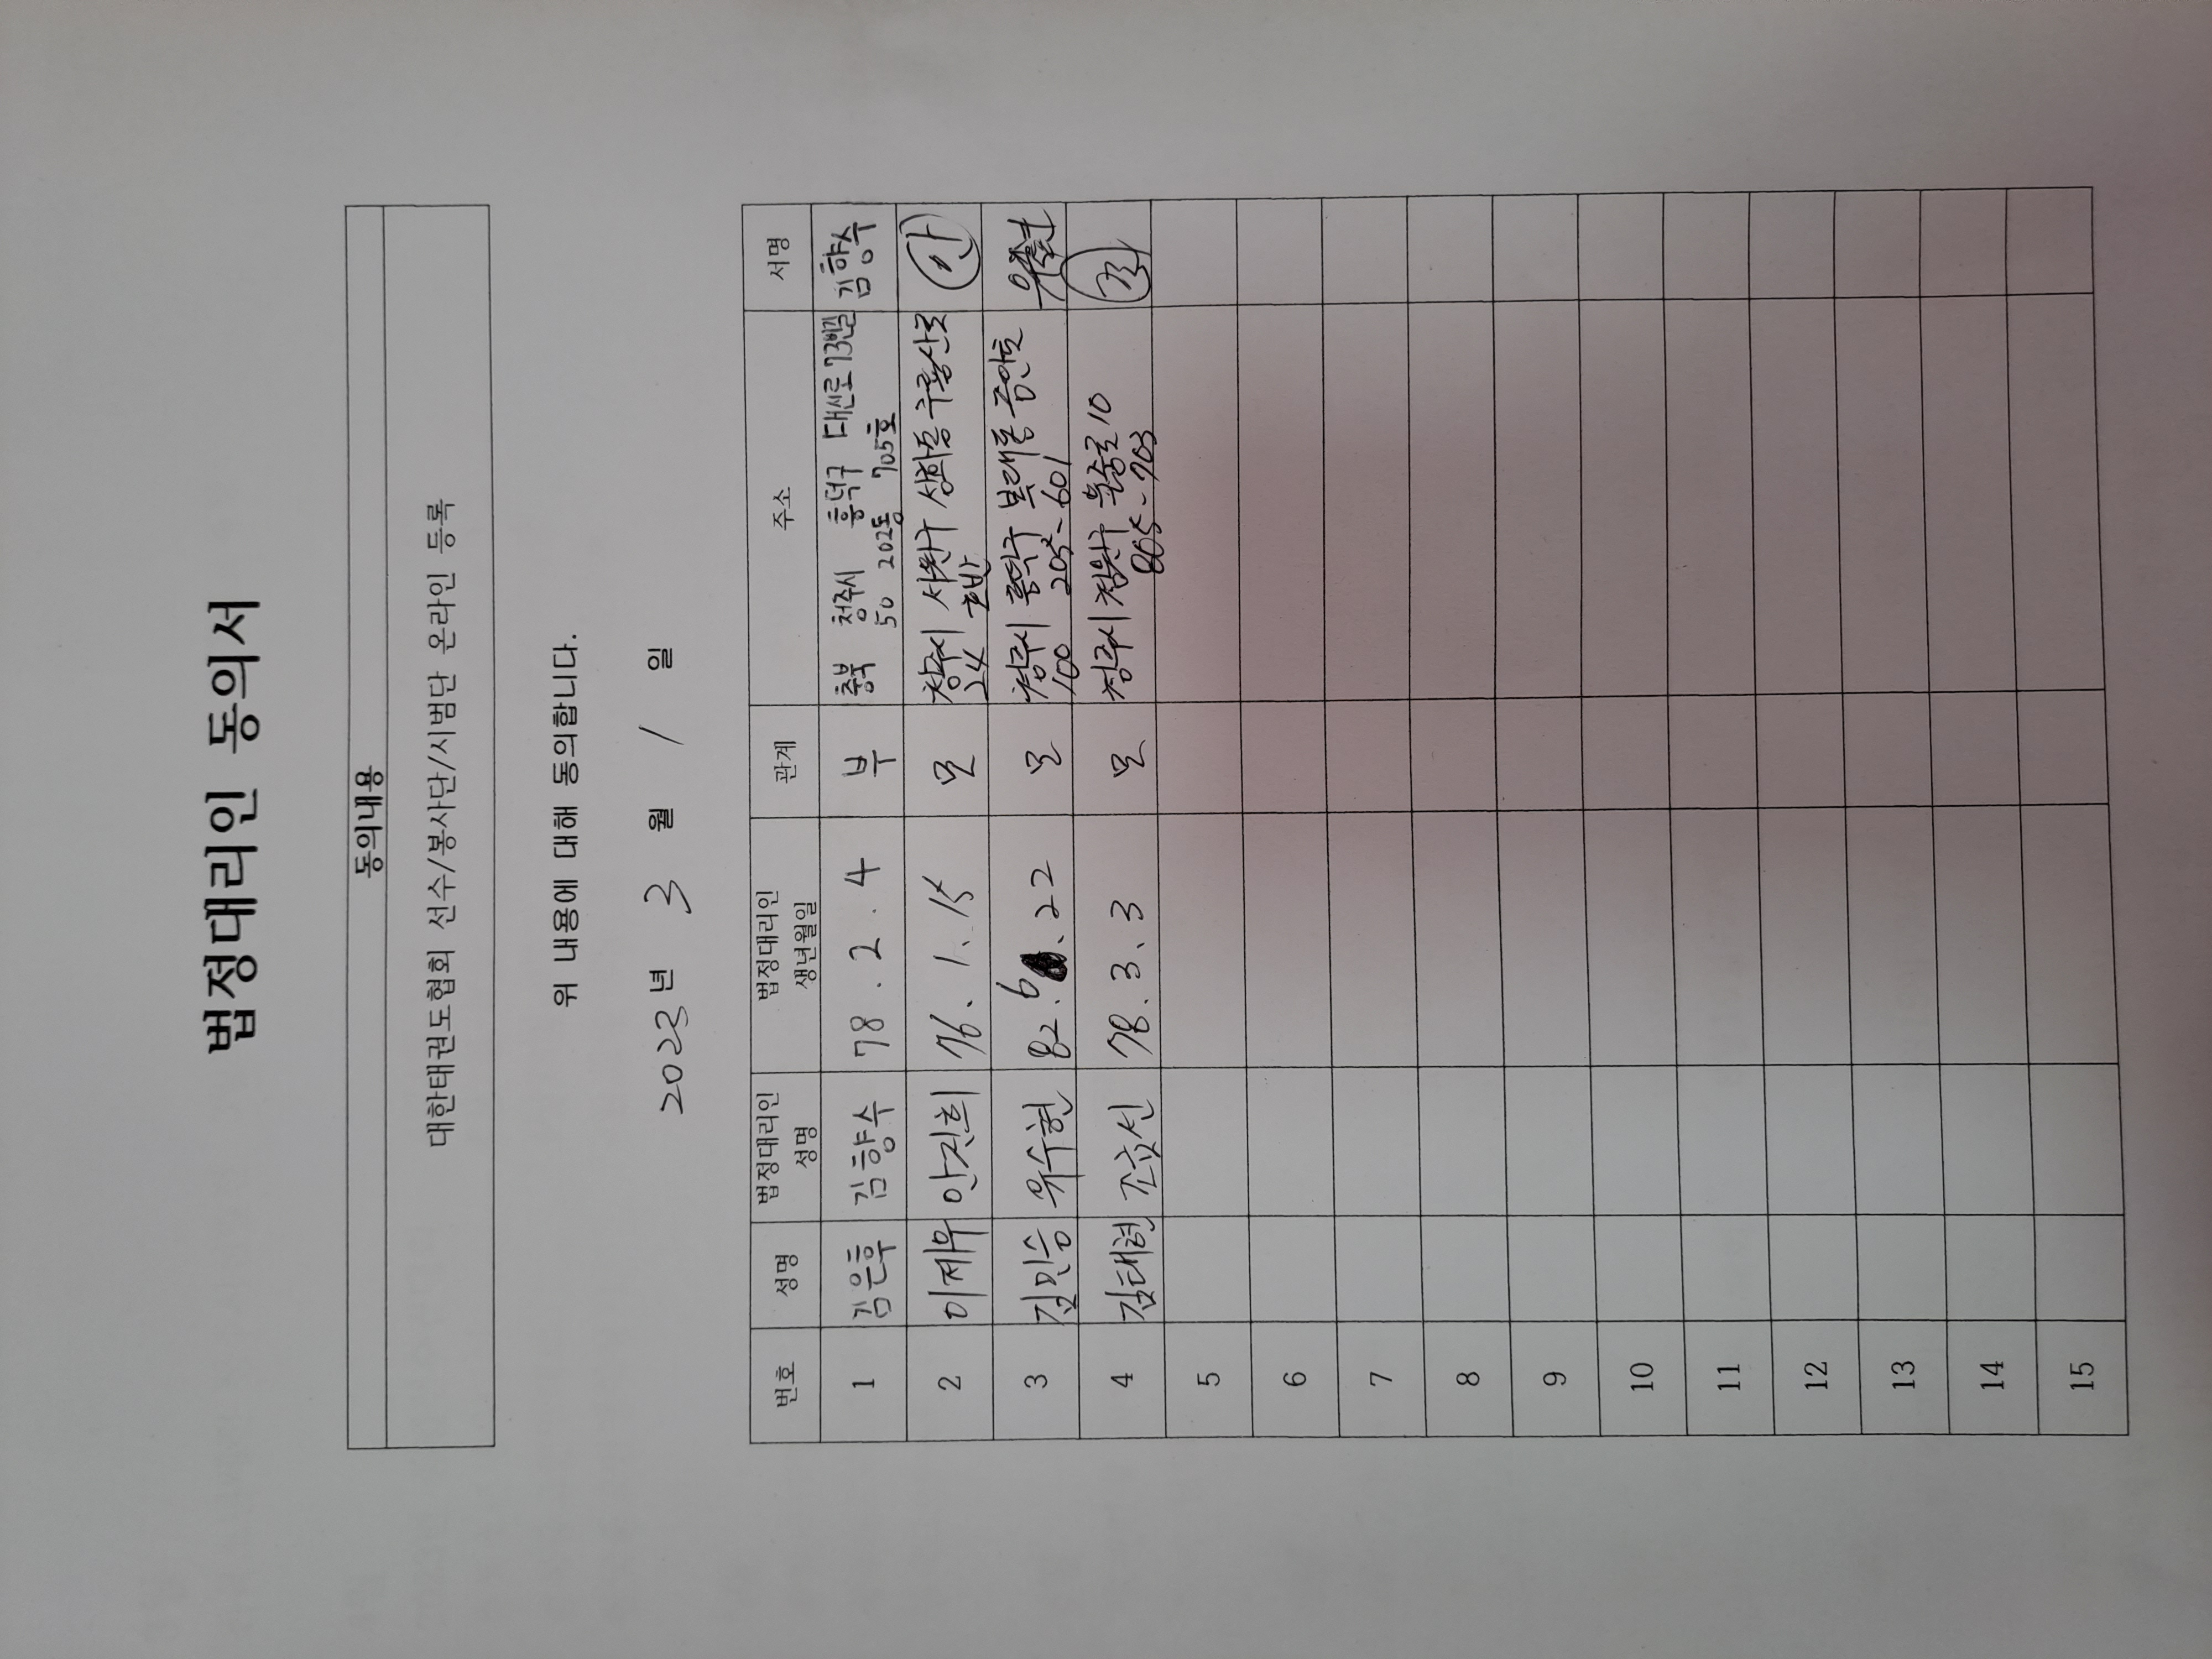 법정대리인 동의서
동의내용
대한태권도협회 선수/봉사단/시범단 온라인 등록
위 내용에 대해 동의합니다.
2023년 3 월 / 일
번호 성명 법정대리인 성명 법정대리인 생년월일 관계 주소 서명
1 김은후 김향수 78 . 2 . 4 부 충북 청주시 흥덕구 대신로 73번길 김향수
50 202동 705호
2 이제우 안진희 76 . 1 . 15 모 청주시 서원구 구룡산로
24
3 김민승 유수현 82 . 6 . 22 모 청주시 흥덕구
100 205-601
4 김태현 78 . 3 . 3 모 청주시 청원구 10
805-703
5
6
7
8
9
10
11
12
13
14
15